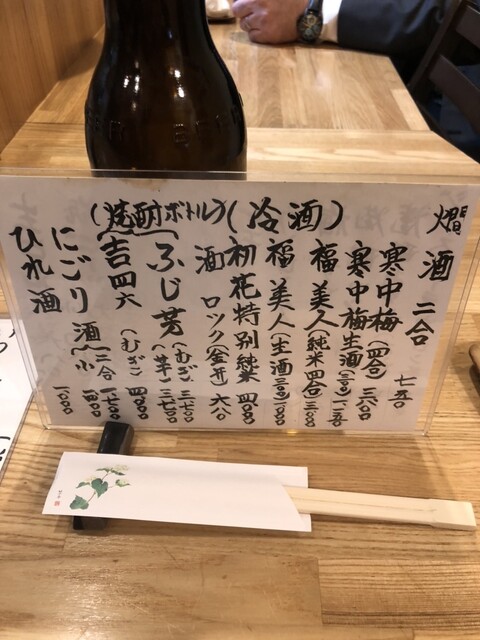 燗酒 二合 七五〇
(冷酒)
寒中梅(四合) 三八〇〇
寒中梅生酒(三〇〇) 一一五〇
福美人純米四合 三八〇〇
福美人(生酒三〇〇)一一〇〇
初花特別純米 四〇〇〇
酒ロック(金升) 六八〇
(焼酎ボトル)
ふじ芳(むぎ) 三七〇〇
(芋) 三七〇〇
吉四六(むぎ) 四〇〇〇
にごり酒 二合 一七〇〇
小 九〇〇
ひれ酒 一〇〇〇